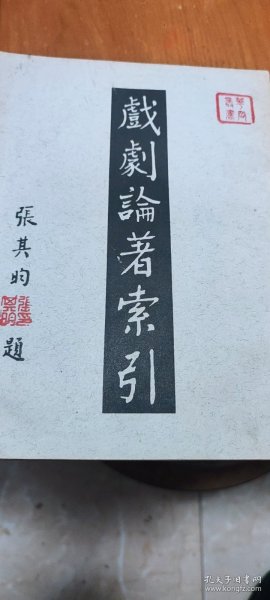 戲劇論著索引
張其昀
題
孔夫子旧书网